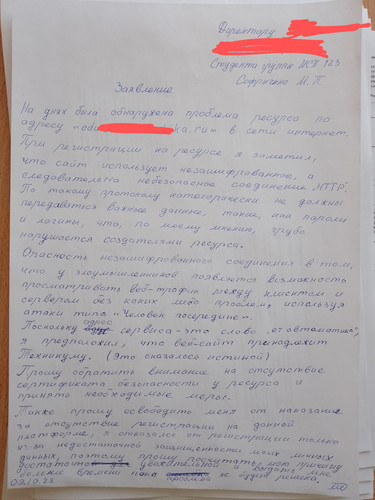 Директору
Студента группы ИСП 123
М. П
Заявление
На днях была обнаружена проблема ресурса по
адресу «edu ka.ru» в сети интернет.
При регистрации на ресурсе я заметил,
что сайт использует незашифрованное, а
следовательно небезопасное соединение "HTTP".
По такому протоколу категорически не должны
передаватся важные данные, такие, как пароли
и логины, что, по моему мнению, грубо
нарушается создателями ресурса.
Опасность незашифрованного соединения в том,
что у злоумышленников появляется возможность
просматривать веб-трафик между клиентом и
сервером без каких либо проблем, используя
атаки типа "Человек посередине".
Поскольку адрес сервиса - это слово "от автоматика",
я предположил, что веб-сайт пренадлежит
Техникуму. (Это оказалось истиной)
Прошу обратить внимание на отсутствие
сертификата безопасности у ресурса и
принять необходимые меры.
Также прошу освободить меня от наказания
за отсутствие регистрации на данной
платформе, я отказался от регистрации только
из-за недостаточной защищённости моих личных
данных, поэтому прошу посчитать мою причину
достаточно уважительной и выдать мне
время пока проблема не будет решена.
02.10.23